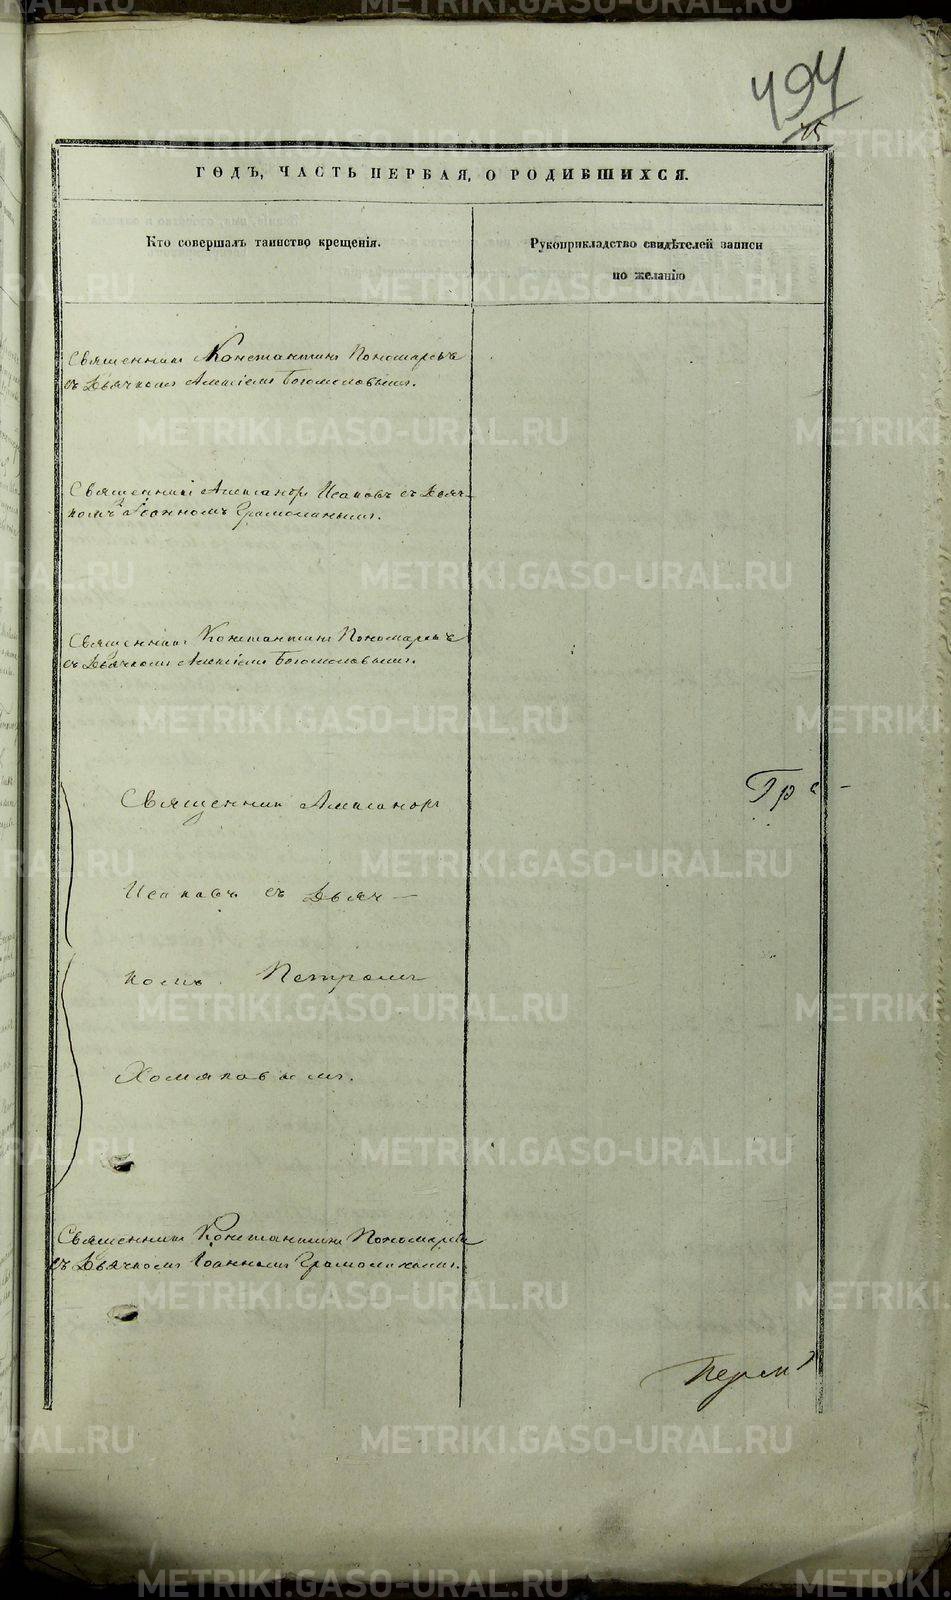 494
75
ГОДЪ, ЧАСТЬ ПЕРВАЯ, О РОДИВШИХСЯ.
Кто совершалъ таинство крещенія.
Рукоприкладство свидѣтелей записи
по желанію
Священникъ Константинъ Пономаревъ
съ Дьячкомъ Алексіемъ Богомоловымъ.
Священникъ Александръ Исаковъ съ Дьяч-
комъ Іоанномъ Грамолинымъ.
Священникъ Константинъ Пономаревъ
съ Дьячкомъ Алексіемъ Богомоловымъ.
Священникъ Александръ
Исаковъ съ Дьяч-
комъ Петромъ
Хомяковымъ.
Священникъ Константинъ Пономаревъ
съ Дьячкомъ Іоанномъ
METRIKI.GASO-URAL.RU